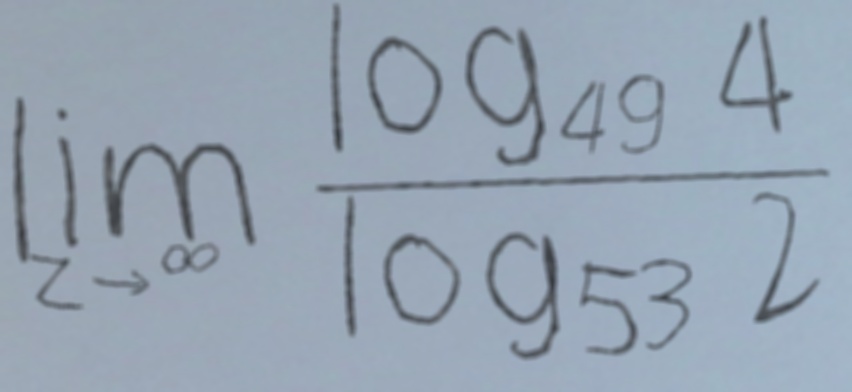 lim_{z→∞} \frac{log_{49} 4}{log_{53} 2}